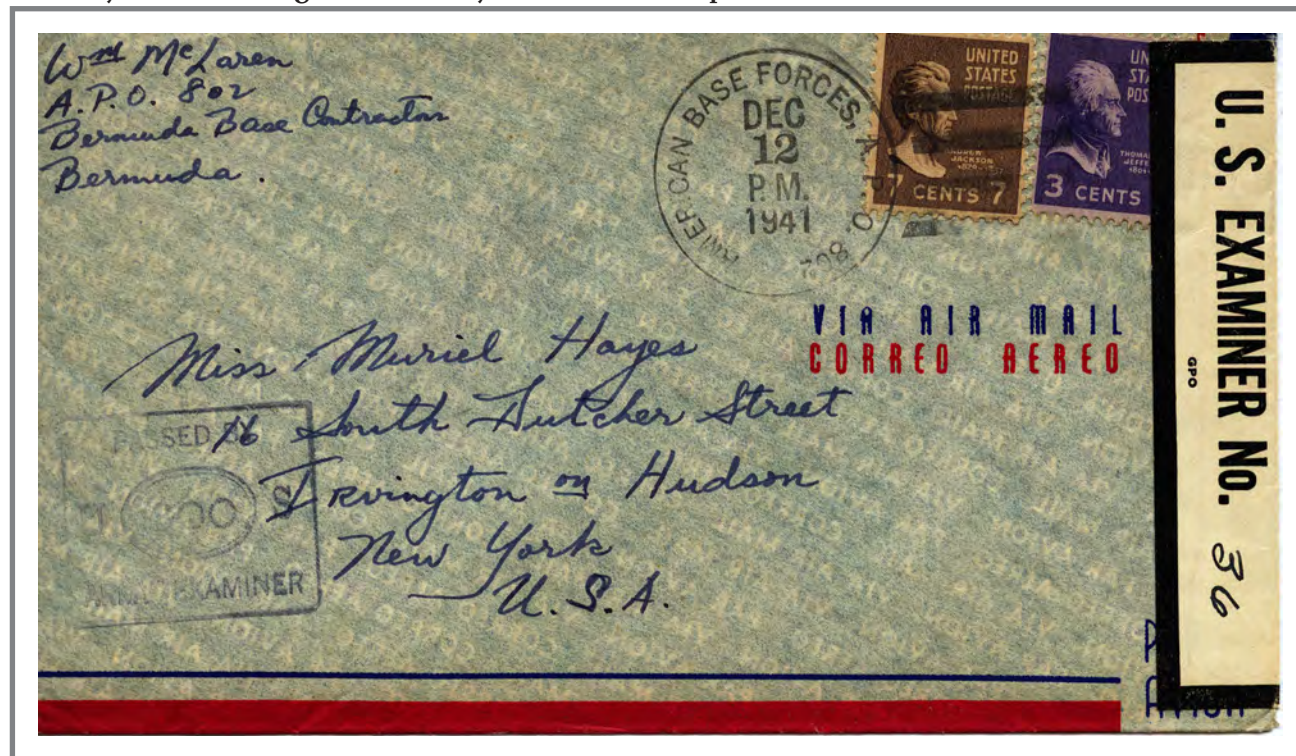 Wm McLaren
A.P.O. 802
Bermuda Base Contractors
Bermuda.
AMERICAN BASE FORCES, A.P.O. 802
DEC
12
P.M.
1941
UNITED
STATES
POSTAGE
JACKSON
7 CENTS 7
3 CENTS
U. S. EXAMINER No. 36
GPO
VIA AIR MAIL
CORREO AEREO
Miss Muriel Hayes
16 South Dutcher Street
Irvington on Hudson
New York
U.S.A.
PASSED
ARMY EXAMINER